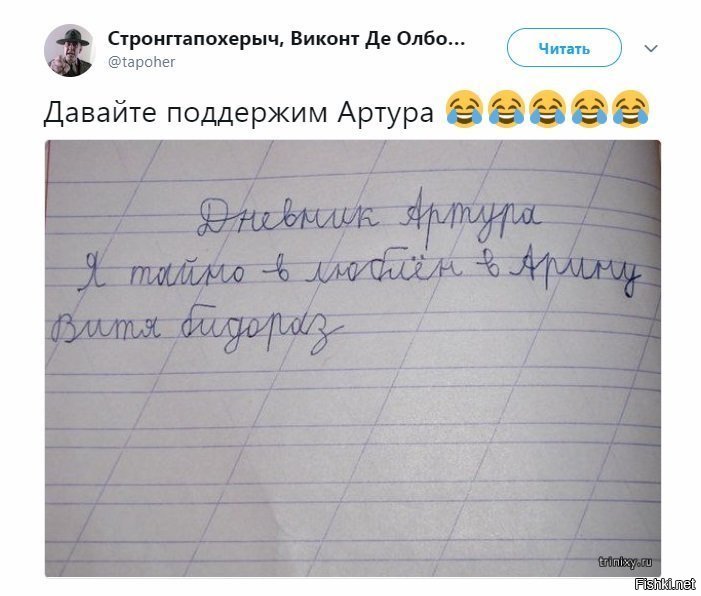 Стронгтапохерыч, Виконт Де Олбо...
@tapoher
Читать
Давайте поддержим Артура 😂😂😂😂😂
Дневник Артура
Я тайно в люблён в Арину
Витя бидораз
trinixy.ru
Fishki.net